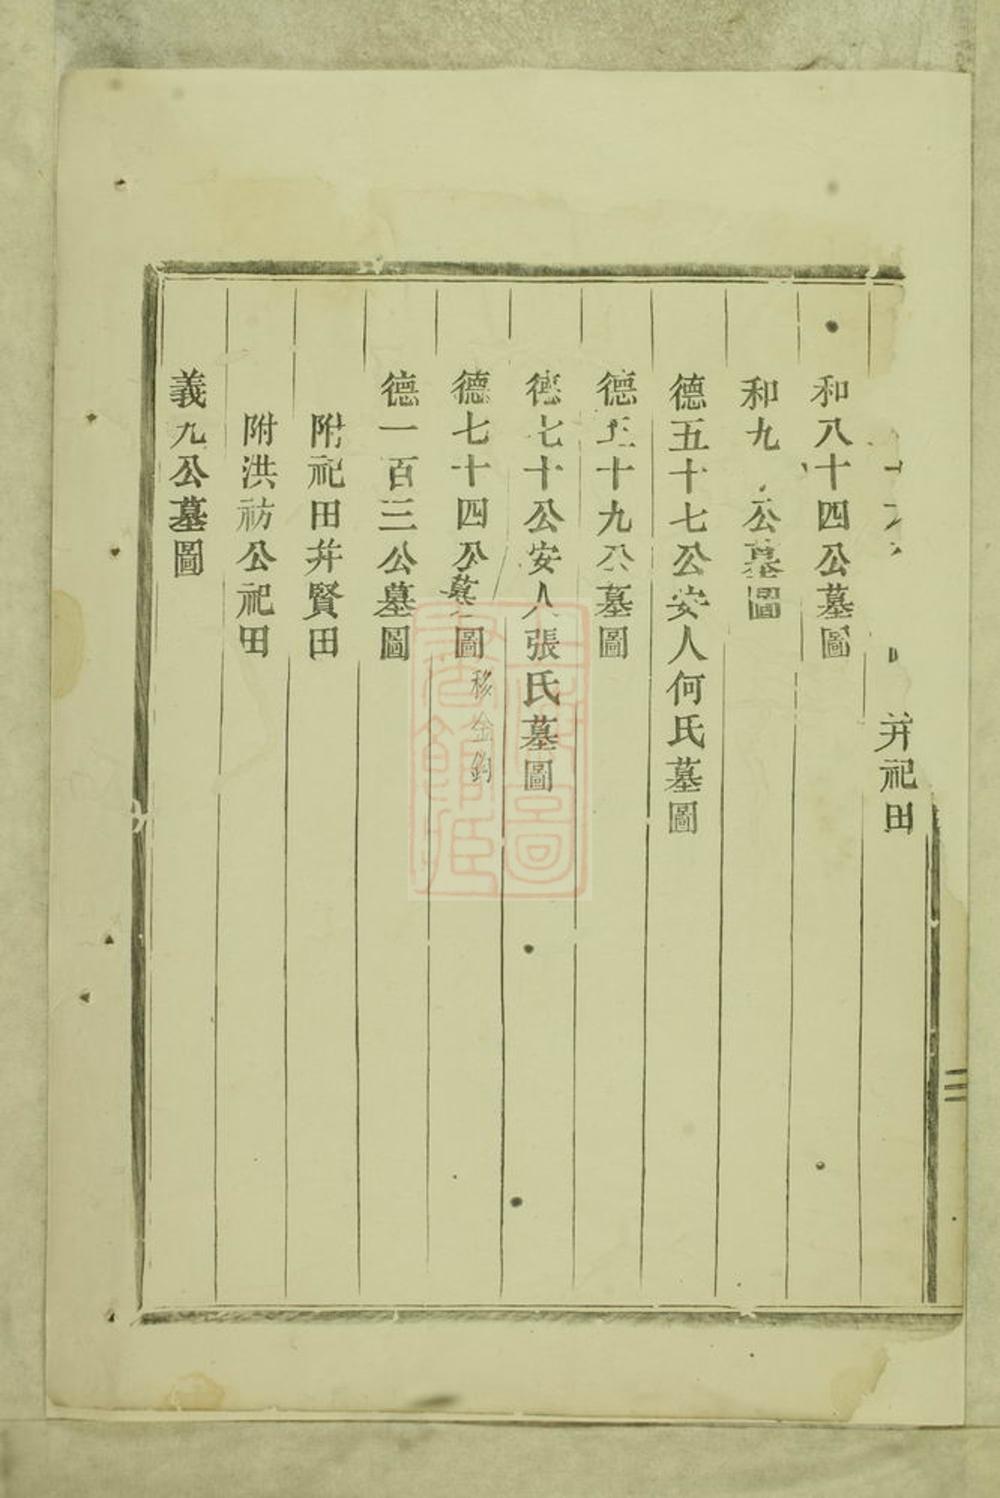 并祀田
和八十四公墓圖
和九公墓圖
德五十七公安人何氏墓圖
德五十九公墓圖
德七十公安人張氏墓圖
德七十四公墓圖移金鈞
德一百三公墓圖
附祀田并賢田
附洪祊公祀田
義九公墓圖
二
上海圖書館藏